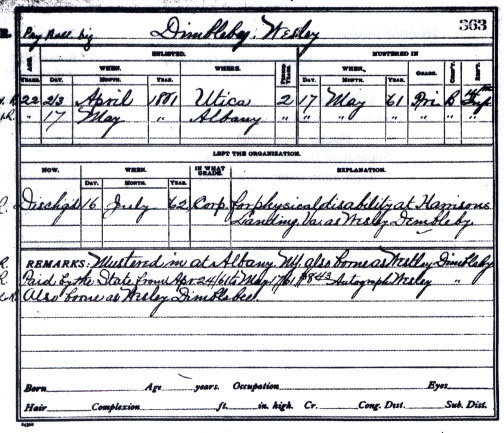 Pay Roll. big Dimbleby, Wesley 363
ENLISTED. MUSTERED IN
AGE. WHEN. WHERE. PERIOD WHEN. GRADE. COMP'Y. REG'T.
YEARS. DAY. MONTH. YEAR. YEARS. DAY. MONTH. YEAR.
22 23 April 1861 Utica 2 17 May 61 Pri B 14
" 17 May " Albany " " " " " "
LEFT THE ORGANIZATION.
HOW. WHEN. IN WHAT GRADE. EXPLANATION.
DAY. MONTH. YEAR.
Dischgd 16 July 62 Corp. for physical disability at Harrisons
Landing Va as Wesley Dembleby
REMARKS: Mustered in at Albany NY also borne as Westley Dimbleby
Paid by the State from Apr 24/61 to May 17/61 $8.43 Autograph Wesley "
Also borne as Wesley Dimblebee.
Born Age years. Occupation Eyes
Hair Complexion ft. in. high. Cr. Cong. Dist. Sub. Dist.